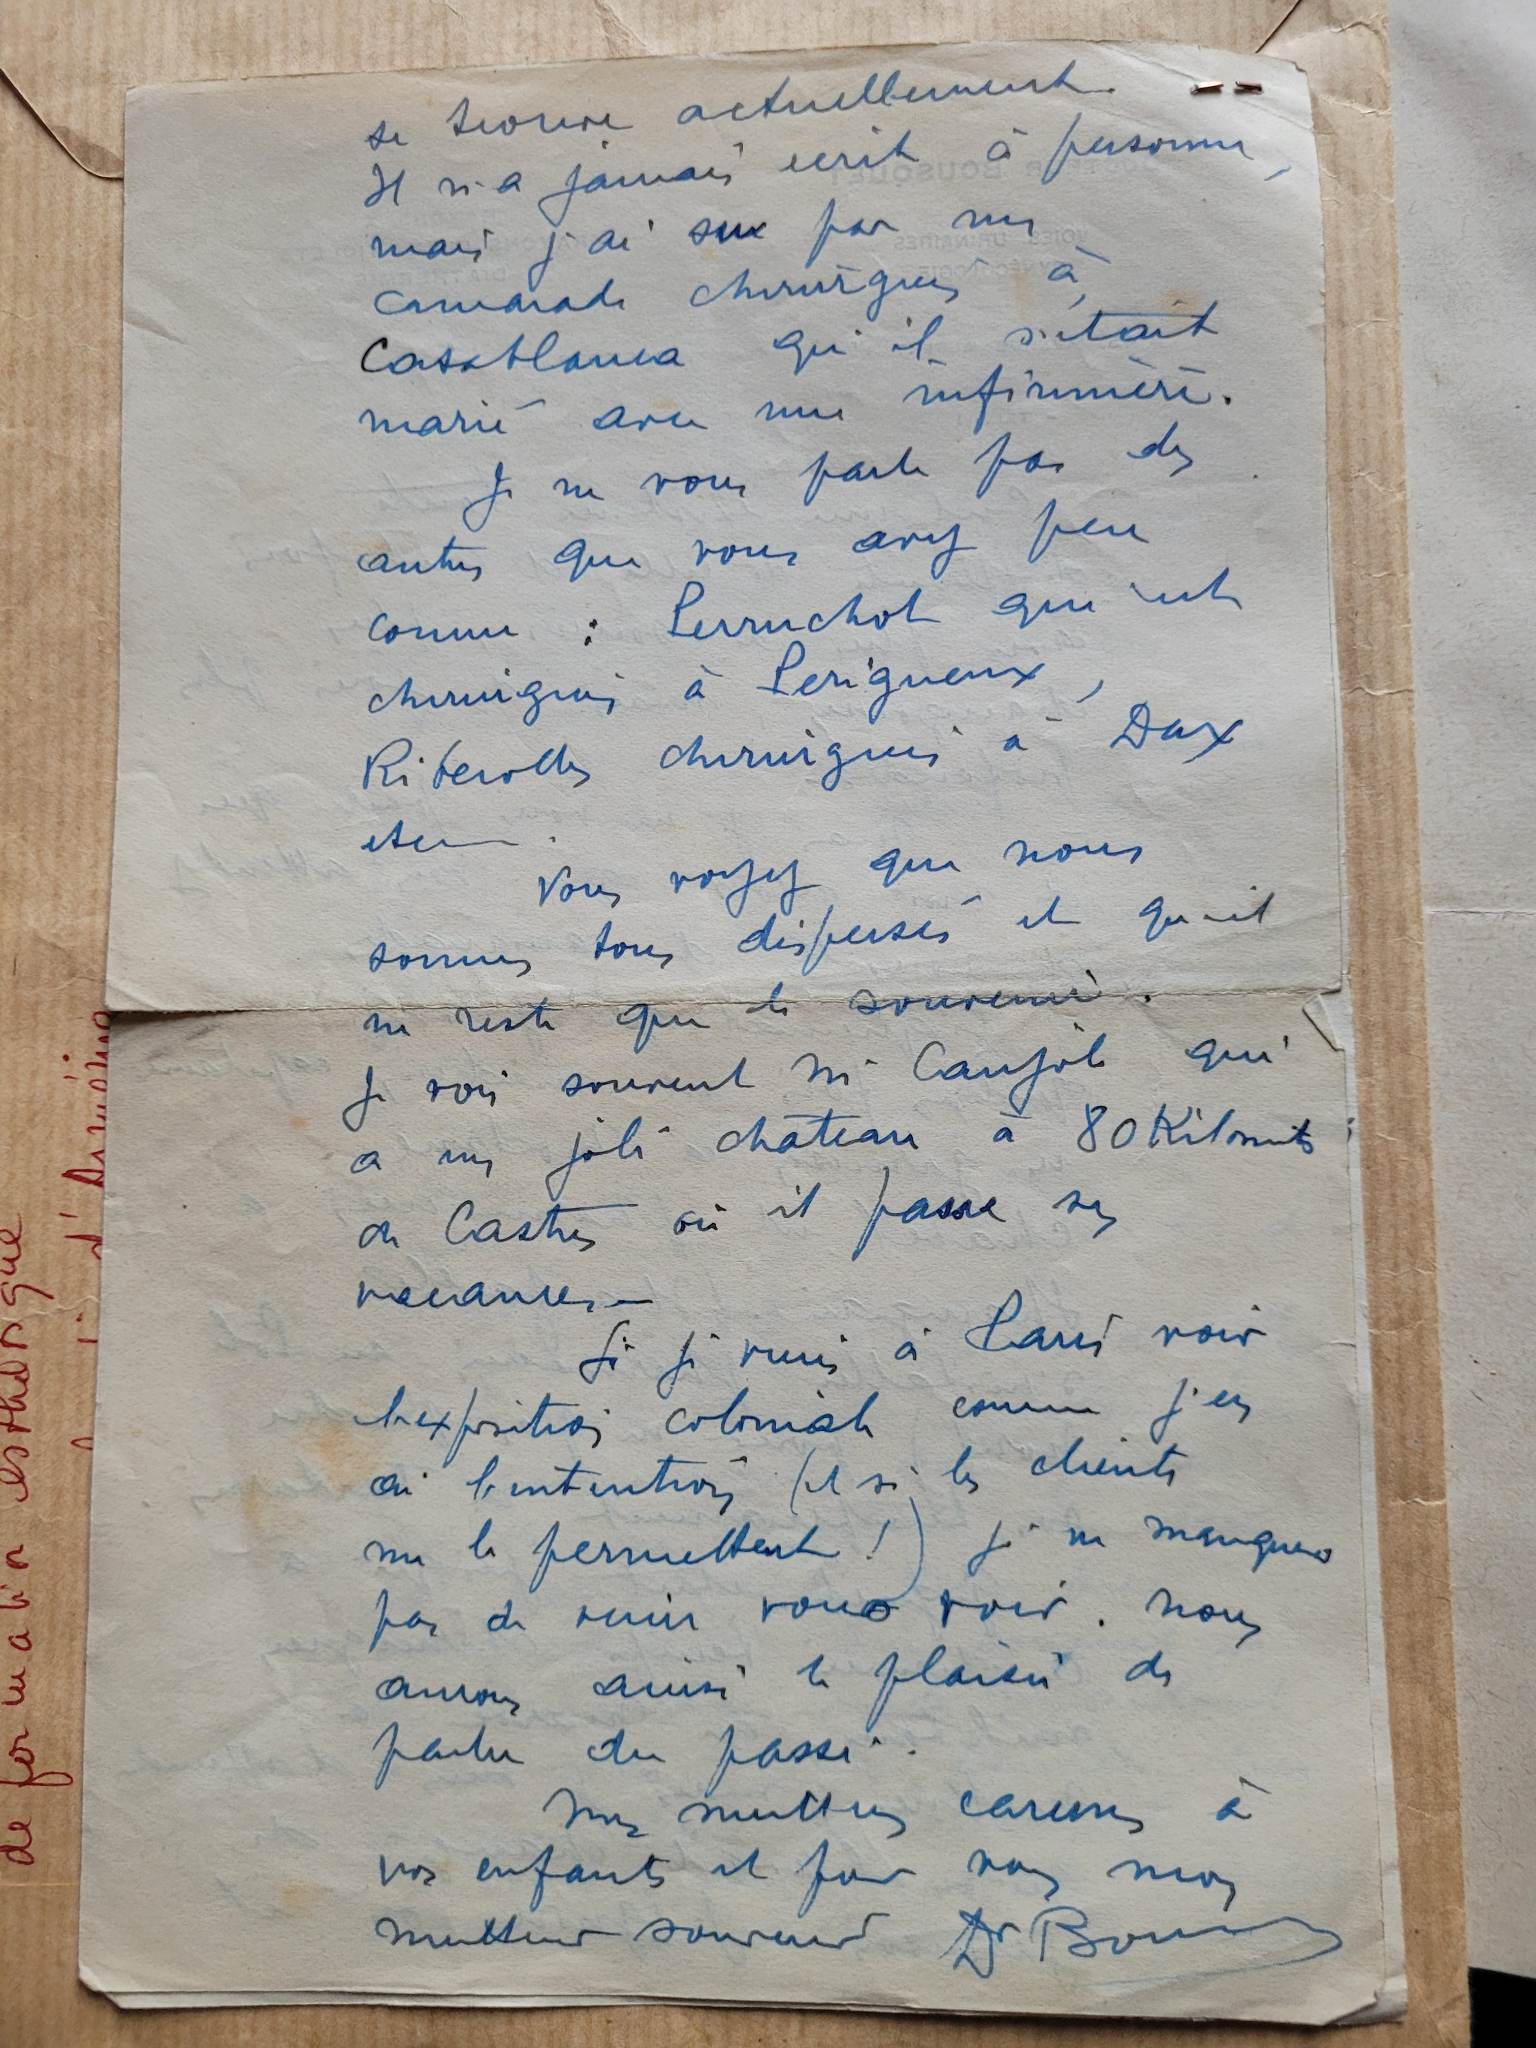 se trouve actuellement.
Il n'a jamais ecrit à personne,
mais j'ai su par un
camarade chirurgien à
Casablanca qu'il s'était
marié avec une infirmière.
Je ne vous parle pas des
autres que vous avez peu
connu : Perruchot qui est
chirurgien à Perigueux,
Riberolles chirurgien à Dax
etc
Vous voyez que nous
sommes tous dispersés et qu'il
ne reste que le souvenir.
Je vois souvent Mr Caujole qui
a un joli château à 80 Kilomets
de Castres où il passe ses
vacances.
Si je viens à Paris voir
l'exposition coloniale comme j'en
ai l'intention (et si les clients
me le permettent !) je ne manquerai
pas de venir vous voir. Nous
aurons ainsi le plaisir de
parler du passé.
Mes meilleures caresses à
vos enfants et pour vous mon
meilleur souvenir Dr Bousquet
Dr BOUSQUET
VOIES URINAIRES
GYNÉCOLOGIE
de formation esthétique